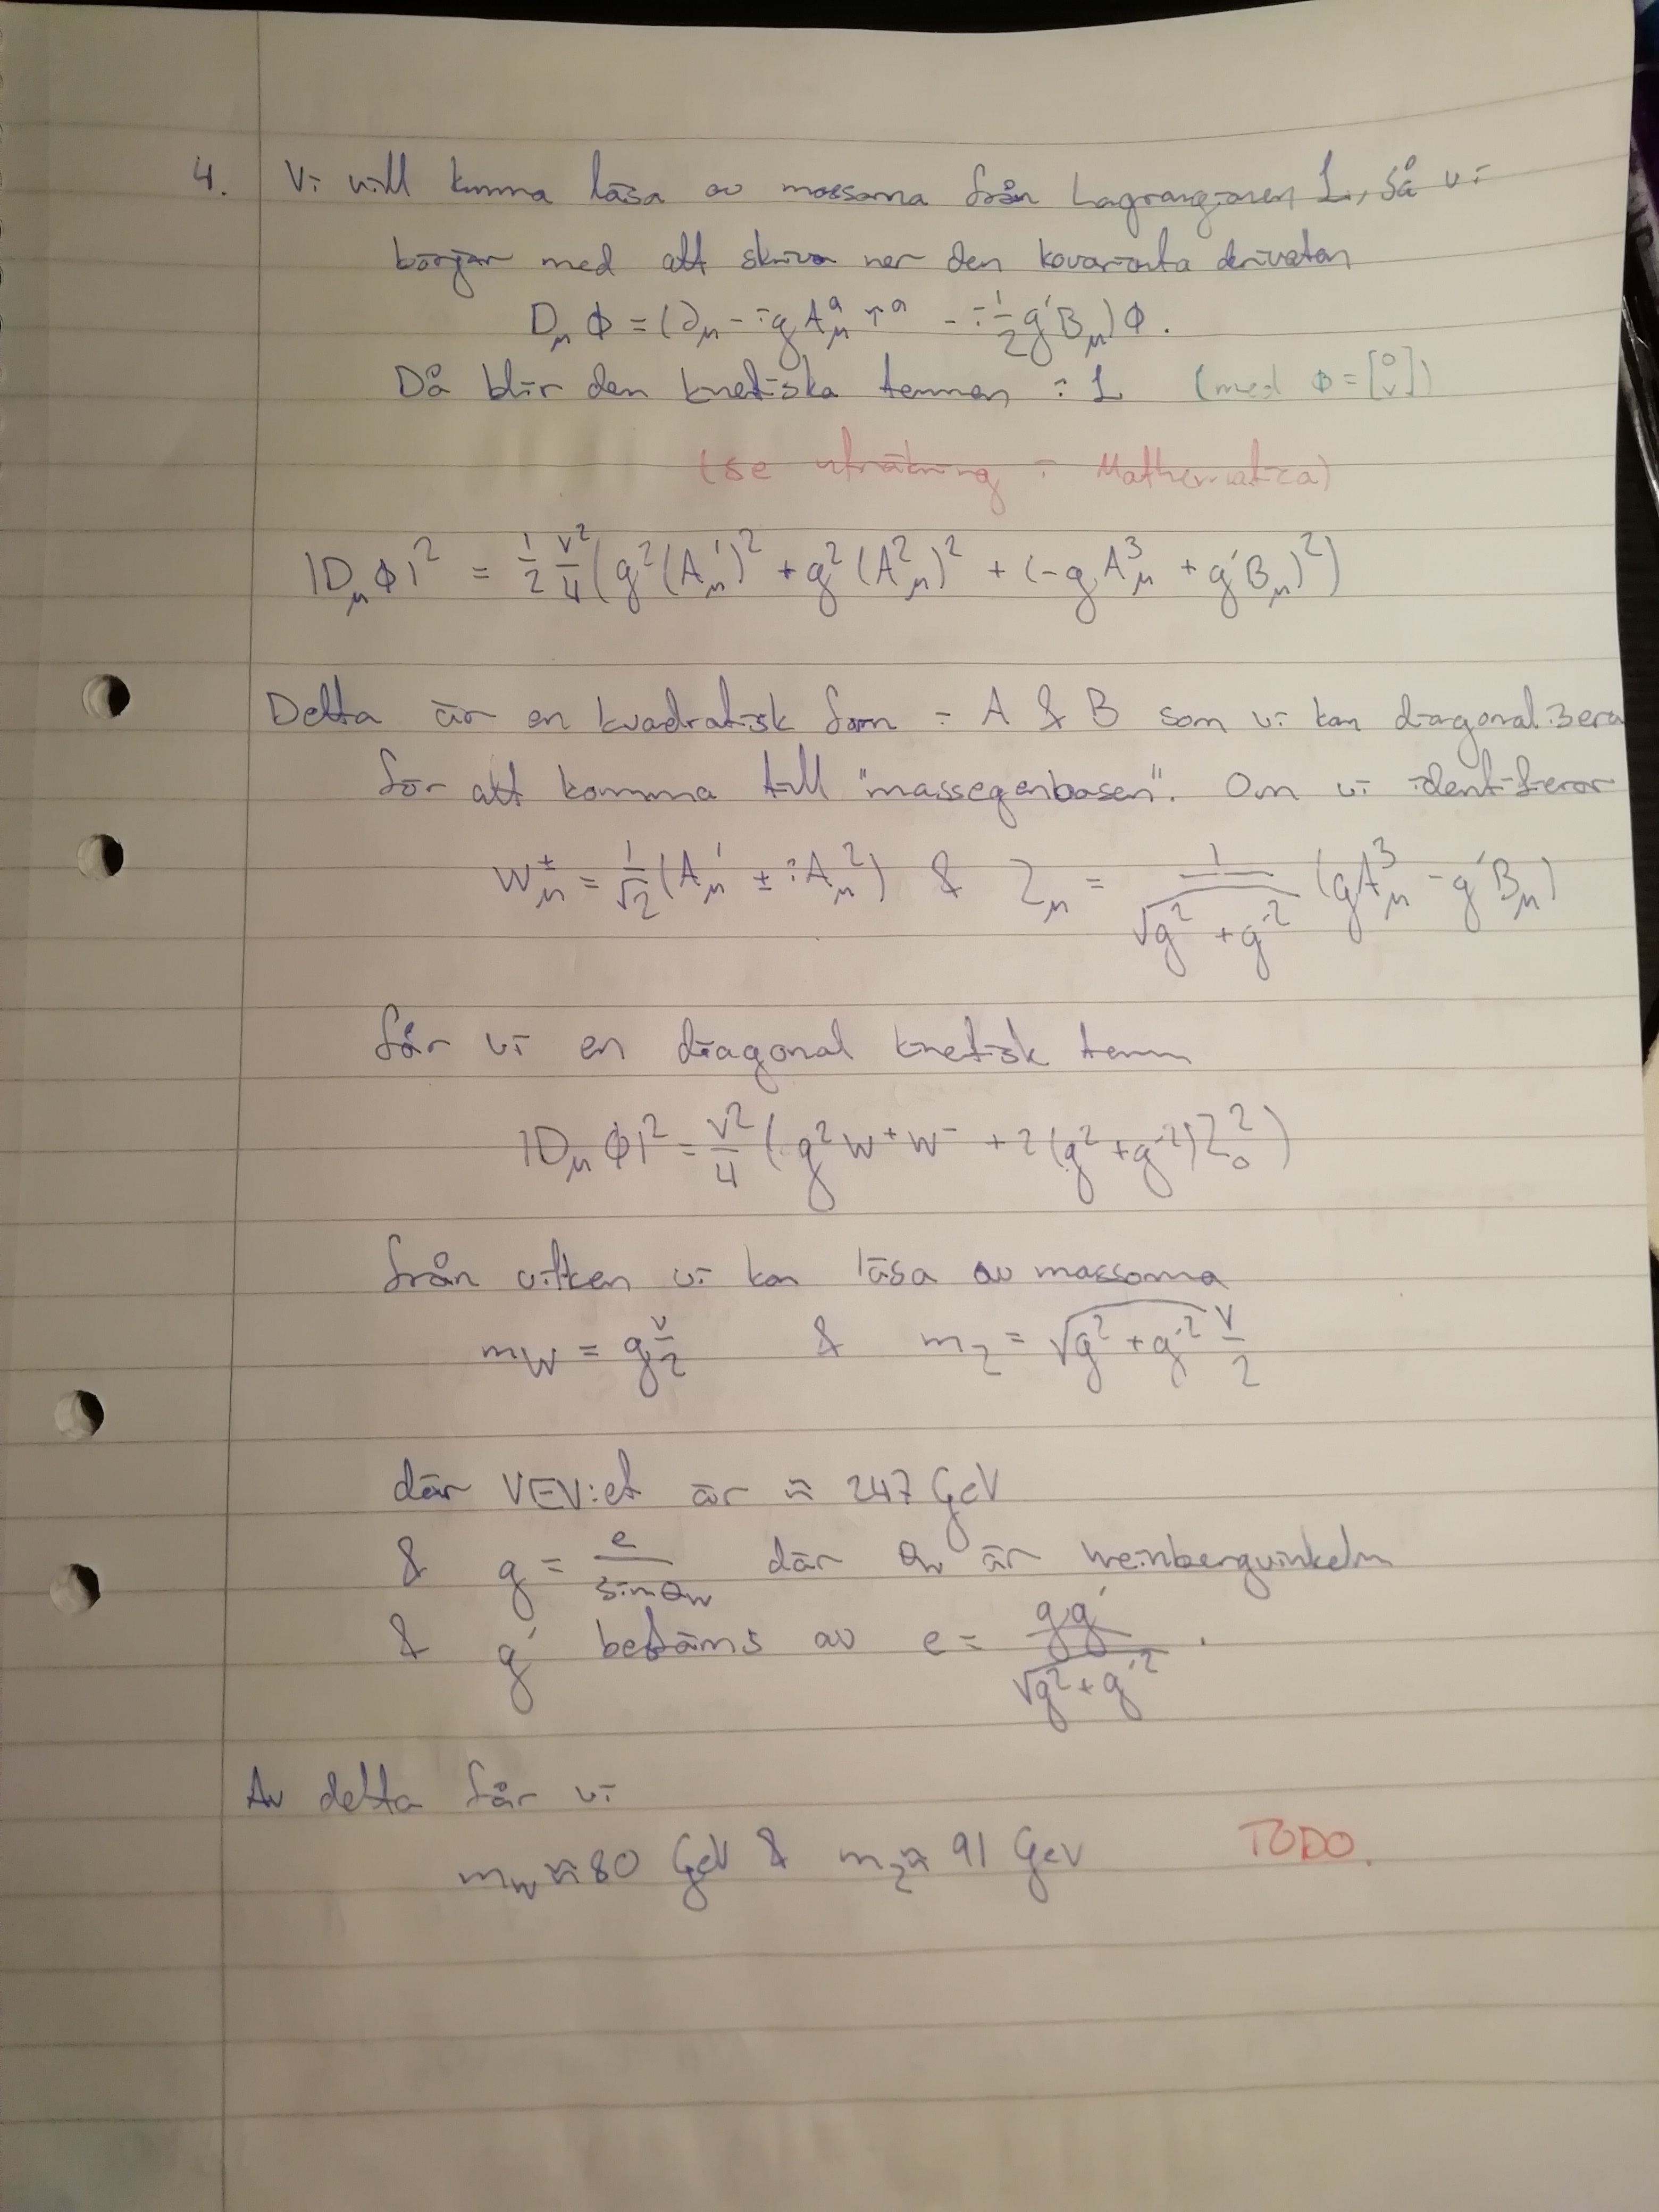 4. Vi vill kunna läsa av massorna från Lagrangianen L, så vi
börjar med att skriva ner den kovarianta derivatan
D_μ ϕ = (∂_μ - i g A^a_μ τ^a - i 1/2 g' B_μ) ϕ.
Då blir den kinetiska termen i L (med ϕ = [0 v])
(se uträkning i Mathematica)
|D_μ ϕ|² = 1/2 v²/4 (g² (A^1_μ)² + g² (A^2_μ)² + (-g A^3_μ + g' B_μ)²)
Detta är en kvadratisk form i A & B som vi kan diagonalisera
för att komma till "massegenbasen". Om vi identifierar
W^±_μ = 1/√2 (A^1_μ ± i A^2_μ) & Z_μ = 1/√(g² + g'²) (g A^3_μ - g' B_μ)
får vi en diagonal kinetisk term
|D_μ ϕ|² = v²/4 (g² W⁺ W⁻ + 2 (g² + g'²) Z_0²)
från vilken vi kan läsa av massorna
m_W = g v/2 & m_Z = √(g² + g'²) v/2
där VEV:et är ≈ 247 GeV
& g = e/sin θ_w där θ_w är weinbergvinkeln
& g' bestäms av e = gg'/√(g² + g'²).
Av detta får vi
m_W ≈ 80 GeV & m_Z ≈ 91 GeV TODO.